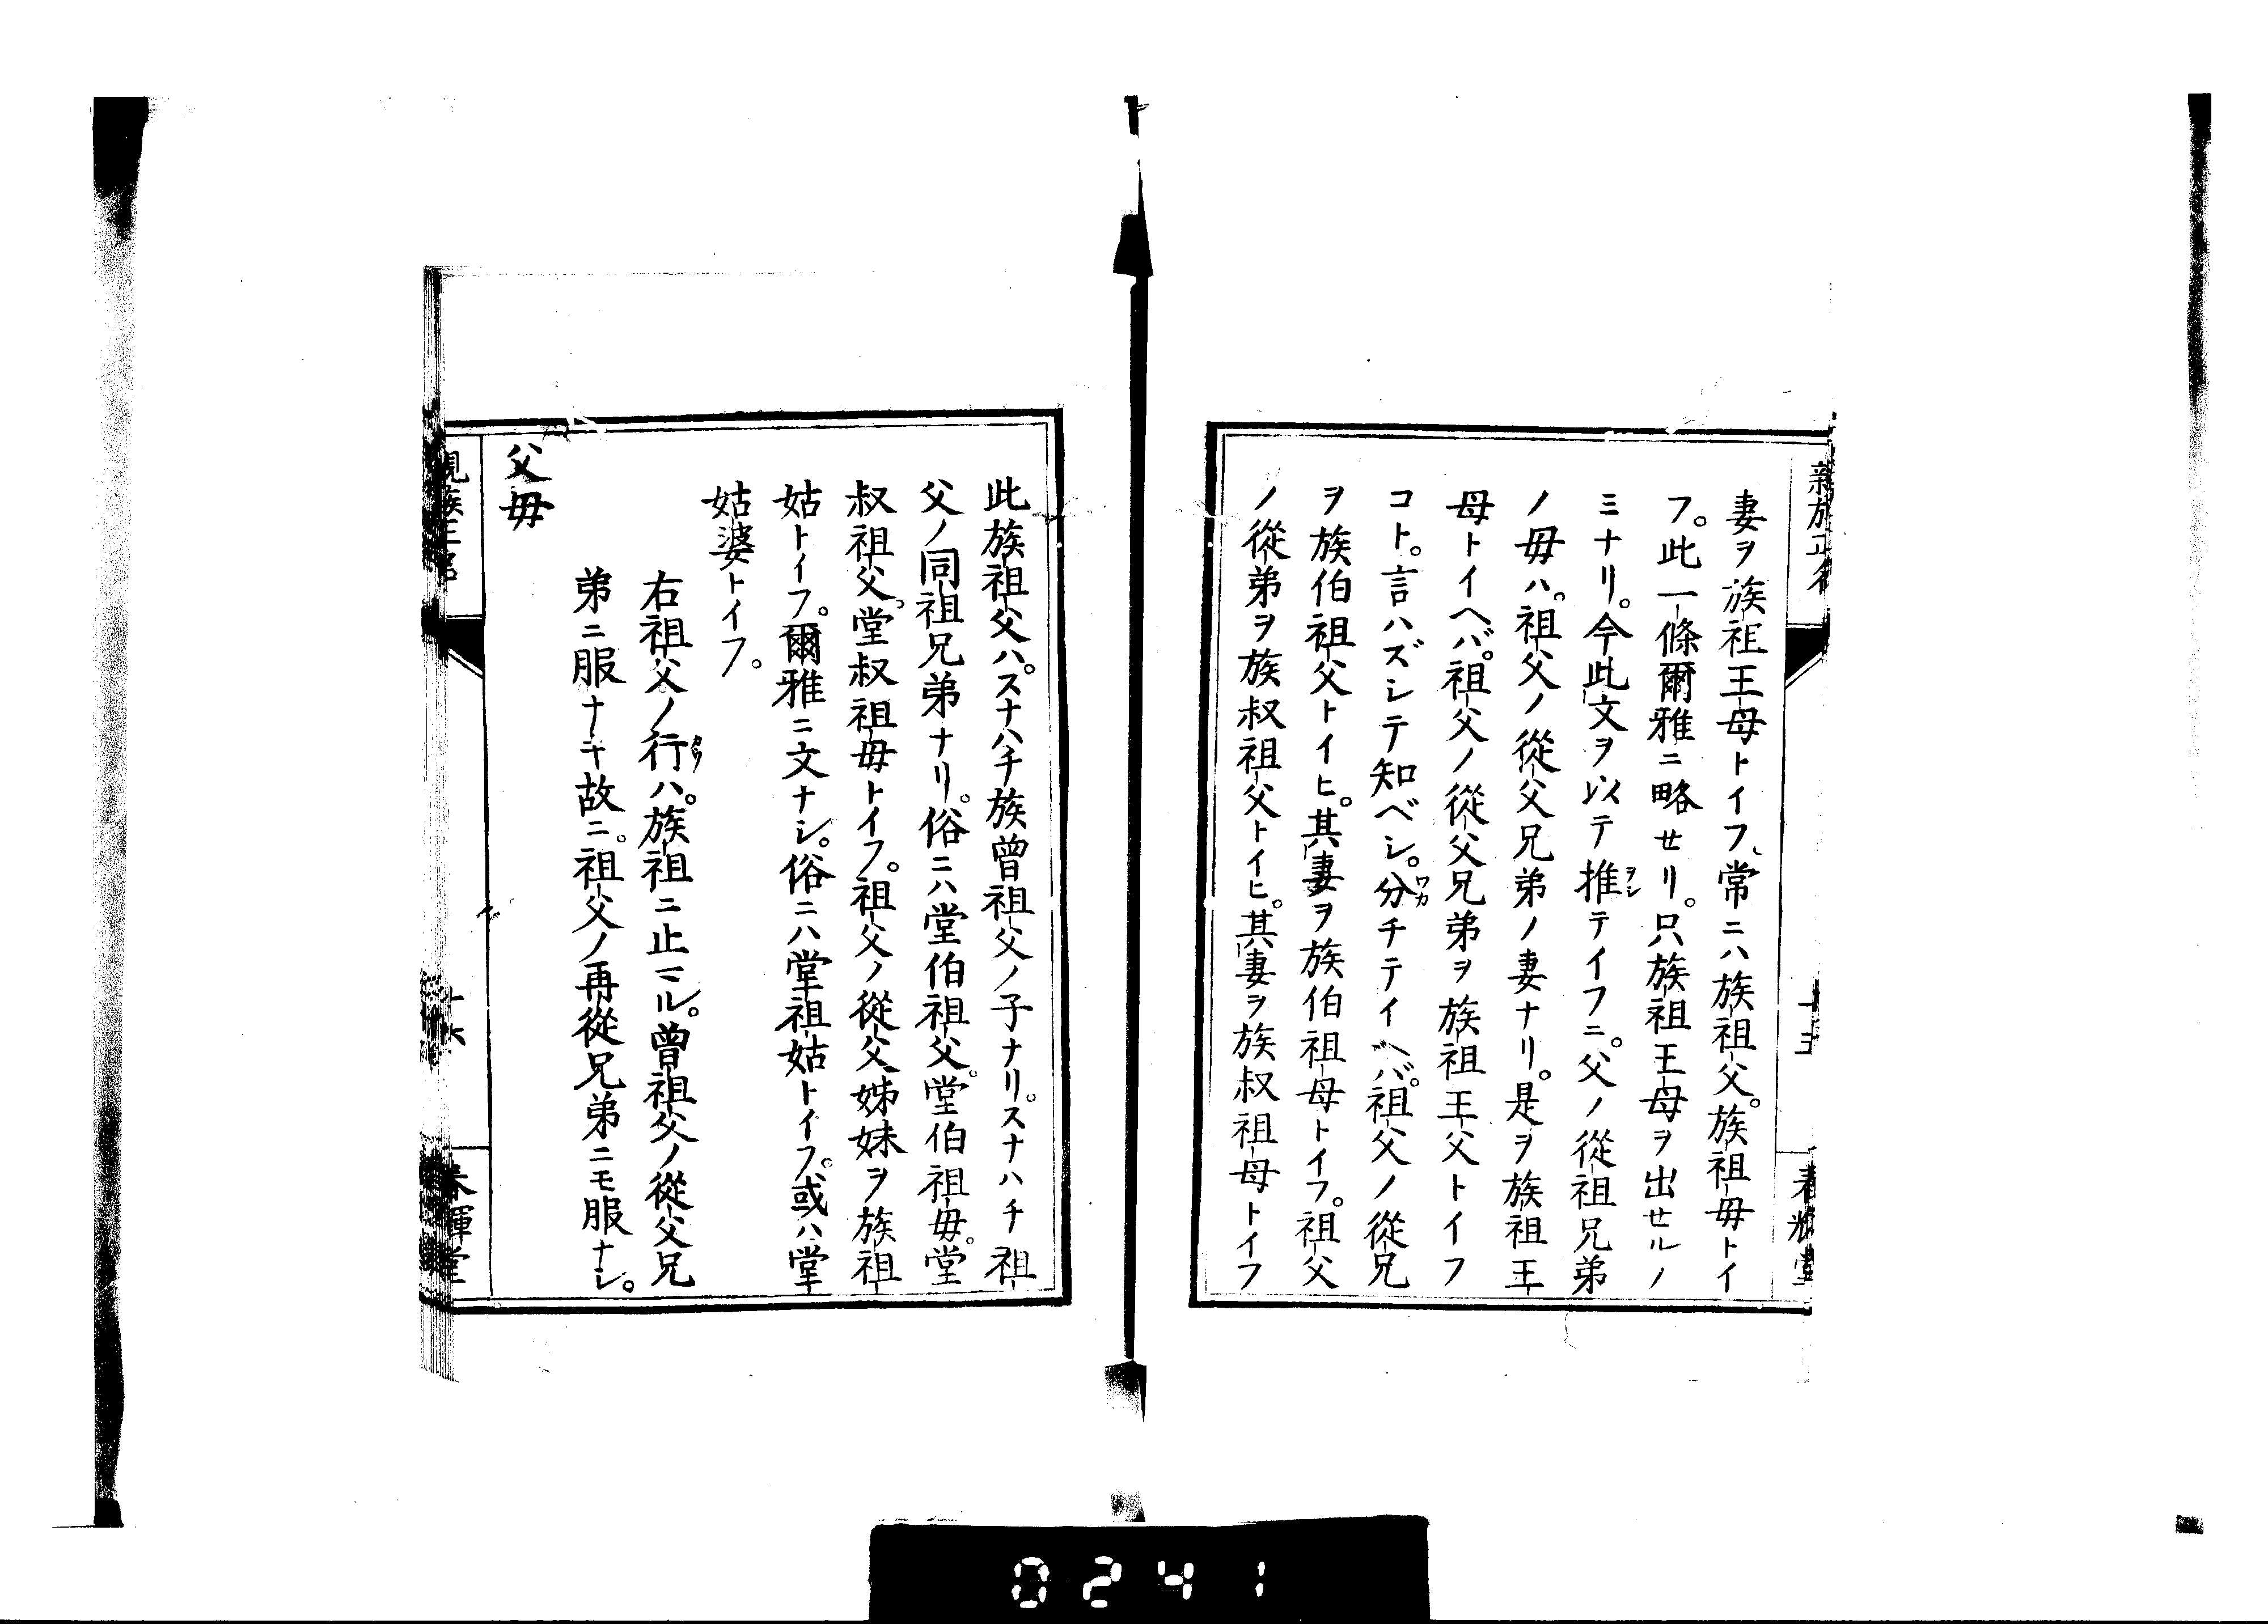 妻ヲ族祖王母トイフ、常ニハ族祖父。族祖毋トイ
フ。此一條爾雅ニ略セリ。只族祖王母ヲ出セルノ
ミナリ。今此文ヲ以テ推テイフニ。父ノ從祖兄弟
ヲシ
ノ毋ハ。祖父ノ從父兄弟ノ妻ナリ。是ヲ族祖王
母トイヘバ。祖父ノ從父兄弟ヲ族祖王父トイフ
コト。言ハズシテ知ベシ。分チテイヘバ。祖父ノ從兄
ワカ
ヲ族伯祖父トイヒ。其妻ヲ族伯祖母トイフ。祖父
ノ從弟ヲ族叔祖父トイヒ。其妻ヲ族叔祖母トイフ
此族祖父ハ。スナハチ族曽祖父ノ子ナリ。スナハチ祖
父ノ同祖兄弟ナリ。俗ニハ堂伯祖父。堂伯祖毋。堂
叔祖父。堂叔祖毋トイフ。祖父ノ從父姊妹ヲ族祖
姑トイフ。爾雅ニ文ナシ。俗ニハ堂祖姑トイフ。或ハ堂
姑婆トイフ。
右祖父ノ行ハ。族祖ニ止マル。曽祖父ノ從父兄
弟ニ服ナキ故ニ。祖父ノ再從兄弟ニモ服ナシ。
父毋
春暉堂
0241